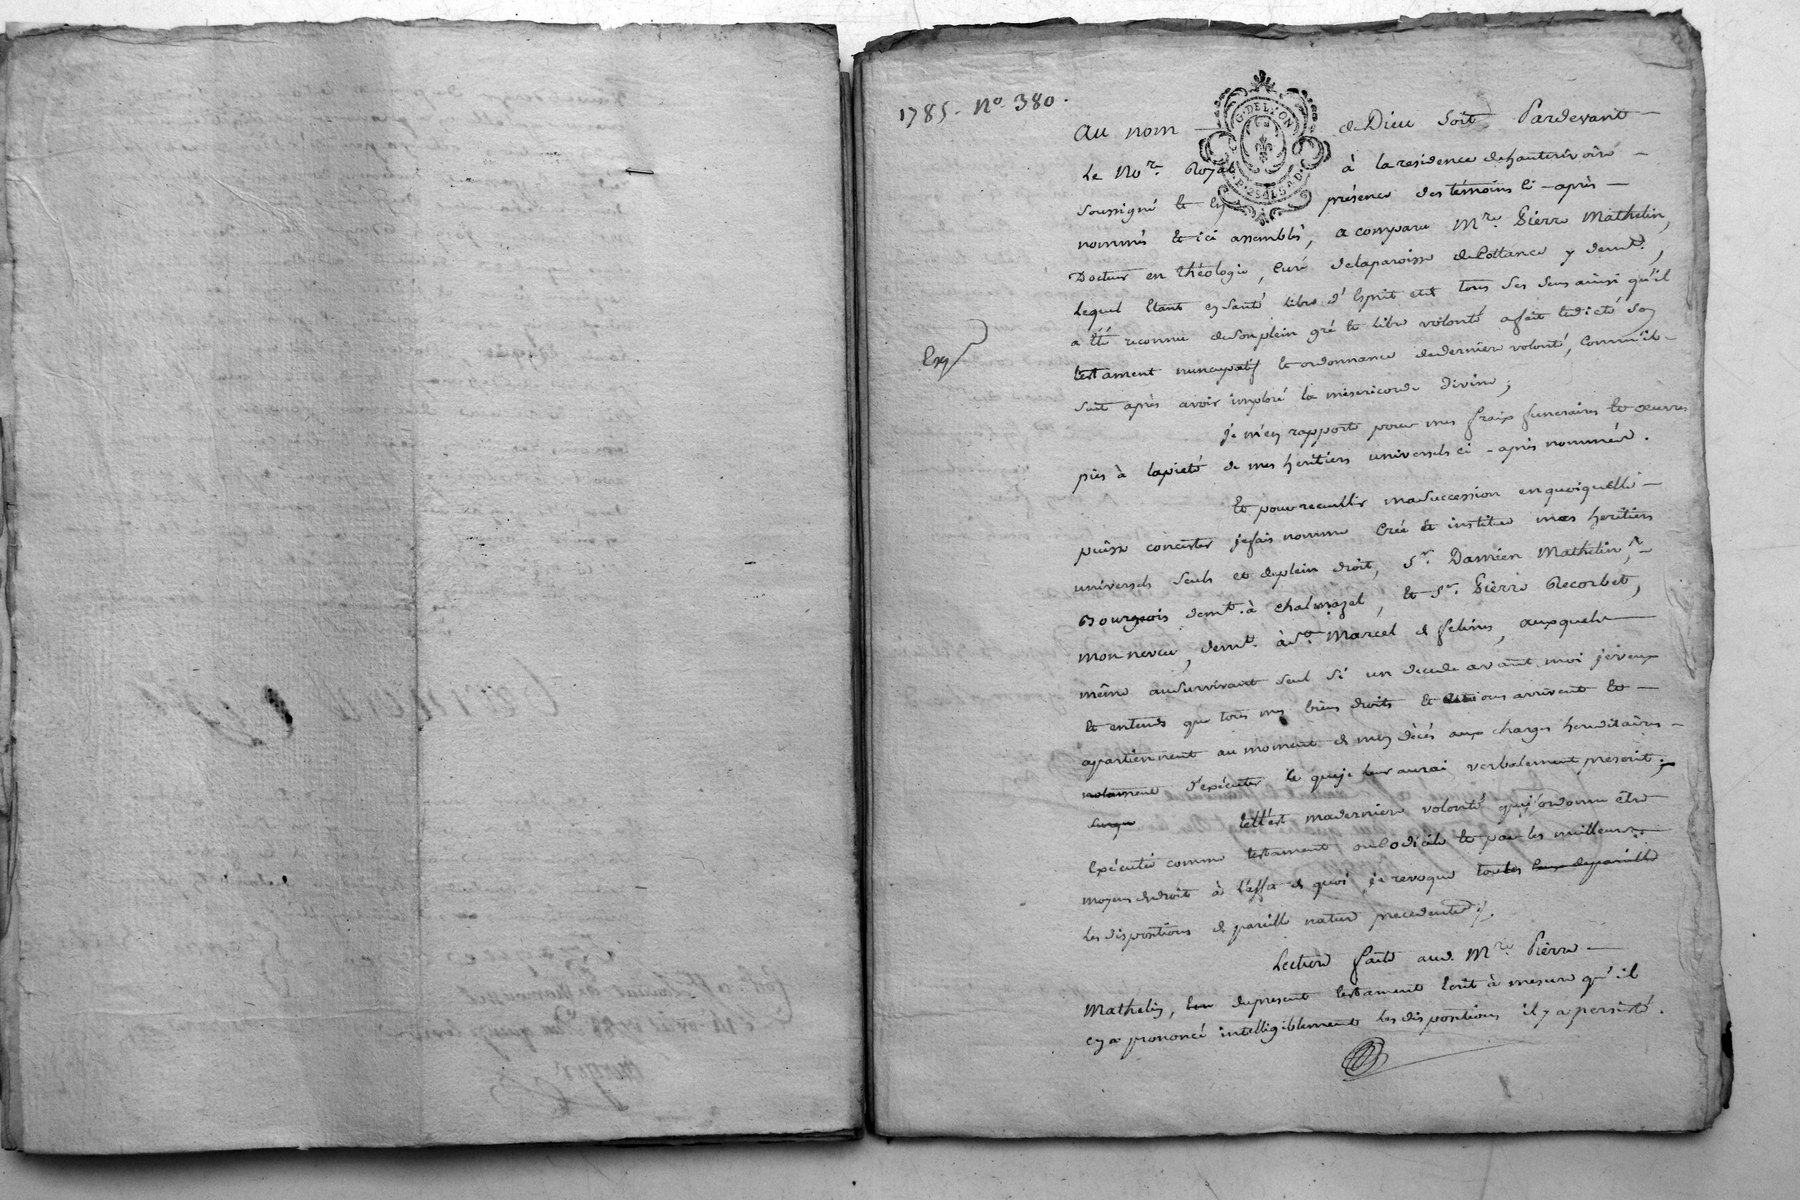 1785. No. 380.
G. DE LYON
Au nom de Dieu soit Pardevant
Le No.re Royal à la residence de hauterivoire
soussigné et en présence des témoins ci-après
nommés et ici assemblés, a comparu M.re Pierre Mathelin,
Docteur en théologie, Curé de la paroisse de Cottance y dem.t,
Lequel Etant en santé libre d'Esprit et tous ses sens ainsi qu'il
a été reconnu de son plein gré et libre volonté a fait et dicté son
testament nuncupatif et ordonnance de derniere volonté, comm'il
suit après avoir imploré la misericorde divine;
Exp
je m'en rapporte pour mes fraix funeraires et oeuvres
pies à la pieté de mes heritiers universels ci-après nommés.
Et pour recueillir ma succession en quoiqu'elle
puisse concister je fais nomme Créé et institue mes heritiers
universels seuls et de plein droit, S.r Damien Mathelin,
Bourgeois dem.t à chalmazel, et S.r Pierre Recorbet,
mon neveu, dem.t à S.t Marcel de felines, auxquels
même au survivant seul si un decede avant moi je veux
et entends que tous mes biens droits et actions arrivent et
apartiennent au moment de mon décès aux charges hereditaires
notament d'exécuter ce que je leur aurai verbalement prescrit;
telle est ma derniere volonté que j'ordonne être
Exécutée comme testament ou codicile et par les meilleurs
moyens de droit à l'effa de quoi je revoque toutes
les dispositions de pareille nature precedentes.
Lecture faite aud. M.re Pierre
Mathelin, du present testament Ecrit à mesure qu'il
en a prononcé intelligiblement les dispositions il y a persisté.